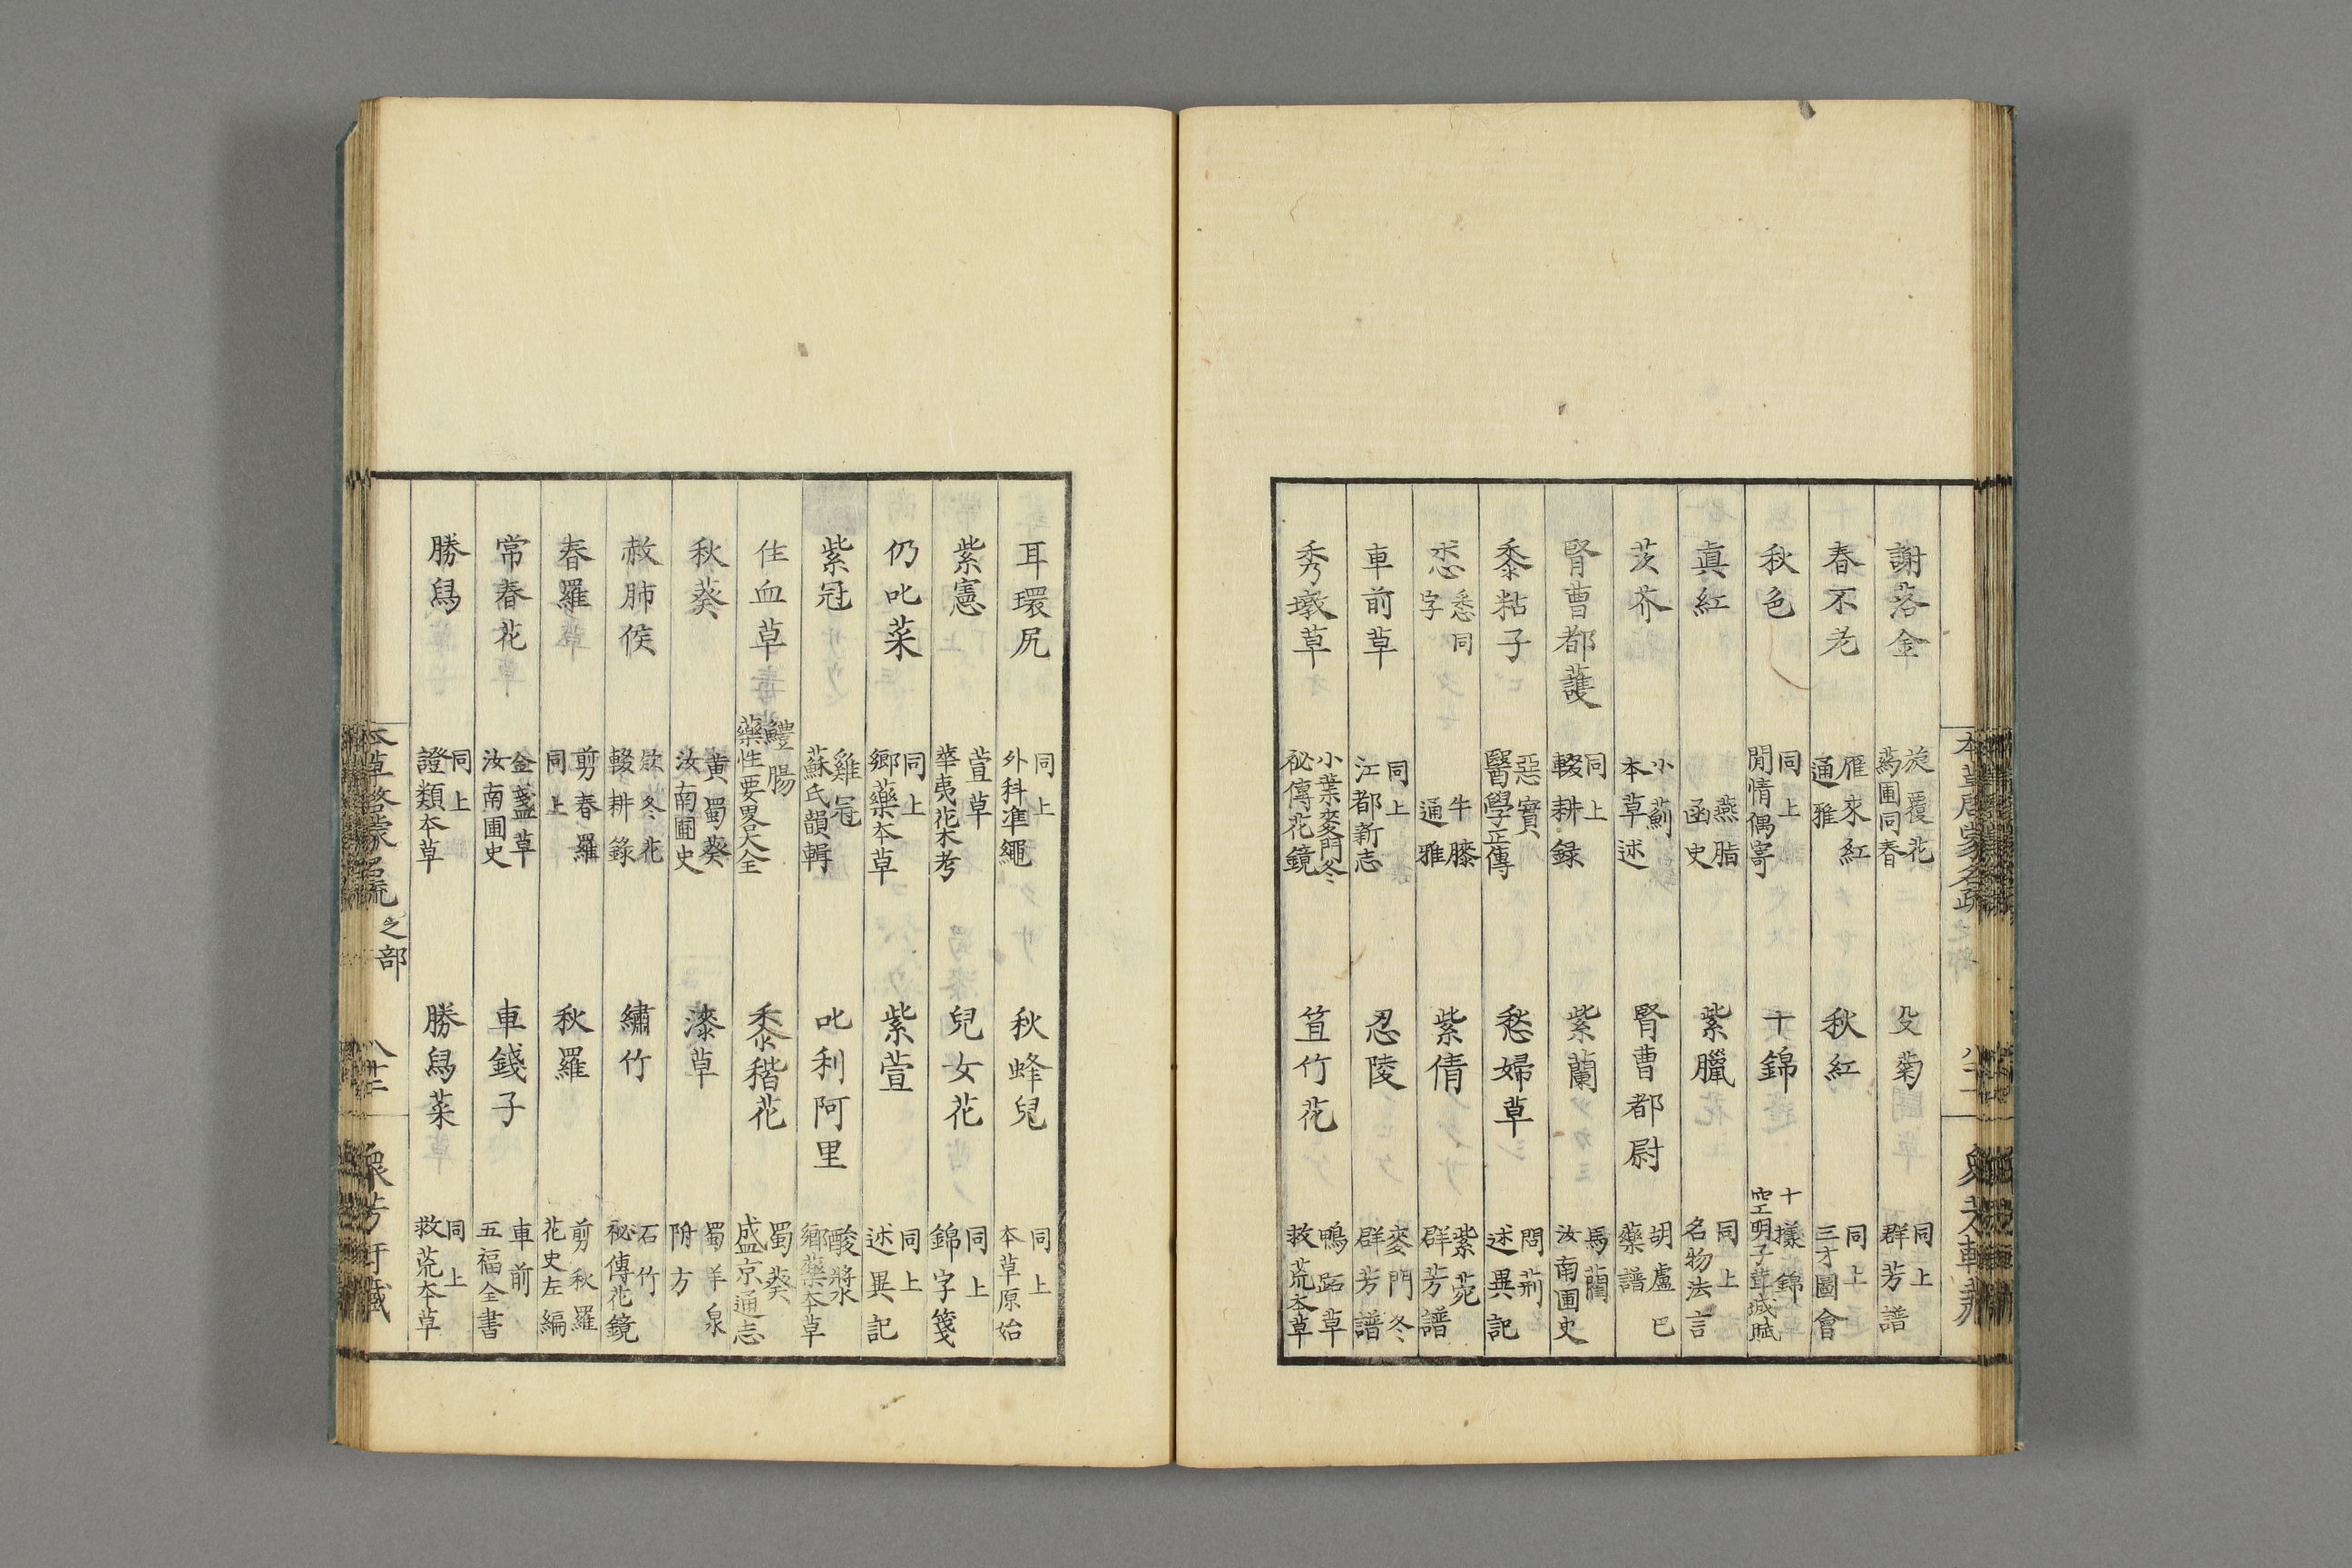 謝落金 旋覆花 藥圃同春
殳菊 同上 群芳譜
春不老 雁來紅 通雅
秋紅 同上 三才圖會
秋色 同上 閒情偶寄
十錦 十㨾錦 空明子茸城賦
真紅 燕脂 函史
紫臘 同上 名物法言
茨芥 小薊 本草述
腎曹都尉 胡盧巴 藥譜
腎曹都護 同上 輟耕録
紫蘭 馬藺 汝南圃史
黍粘子 惡實 醫學正傳
愁婦草 問荊 述異記
悉 悉同字 牛膝 通雅
紫倩 紫菀 群芳譜
車前草 同上 江都新志
忍陵 麥門冬 群芳譜
秀墩草 小葉麥門冬 祕傳花鏡
笪竹花 鴨跖草 救荒本草
耳環尻 同上 外科準繩
秋蜂兒 同上 本草原始
紫蕙 萱草 華夷花木考
兒女花 同上 錦字箋
仍叱菜 同上 郷藥本草
紫萱 同上 述異記
紫冠 雞冠 蘇氏韻輯
叱利阿里 酸漿 郷藥本草
住血草 鱧腸 藥性要畧大全
黍稭花 蜀葵 盛京通志
秋葵 黄蜀葵 汝南圃史
漆草 蜀羊泉 附方
赦肺侯 欵冬花 輟耕錄
繡竹 石竹 祕傳花鏡
春羅 剪春羅 同上
秋羅 剪秋羅 花史左編
常春花 金盞草 汝南圃史
車錢子 車前 五福全書
勝舄 同上 證類本草
勝舄菜 同上 救荒本草
本草啓蒙名疏 之部